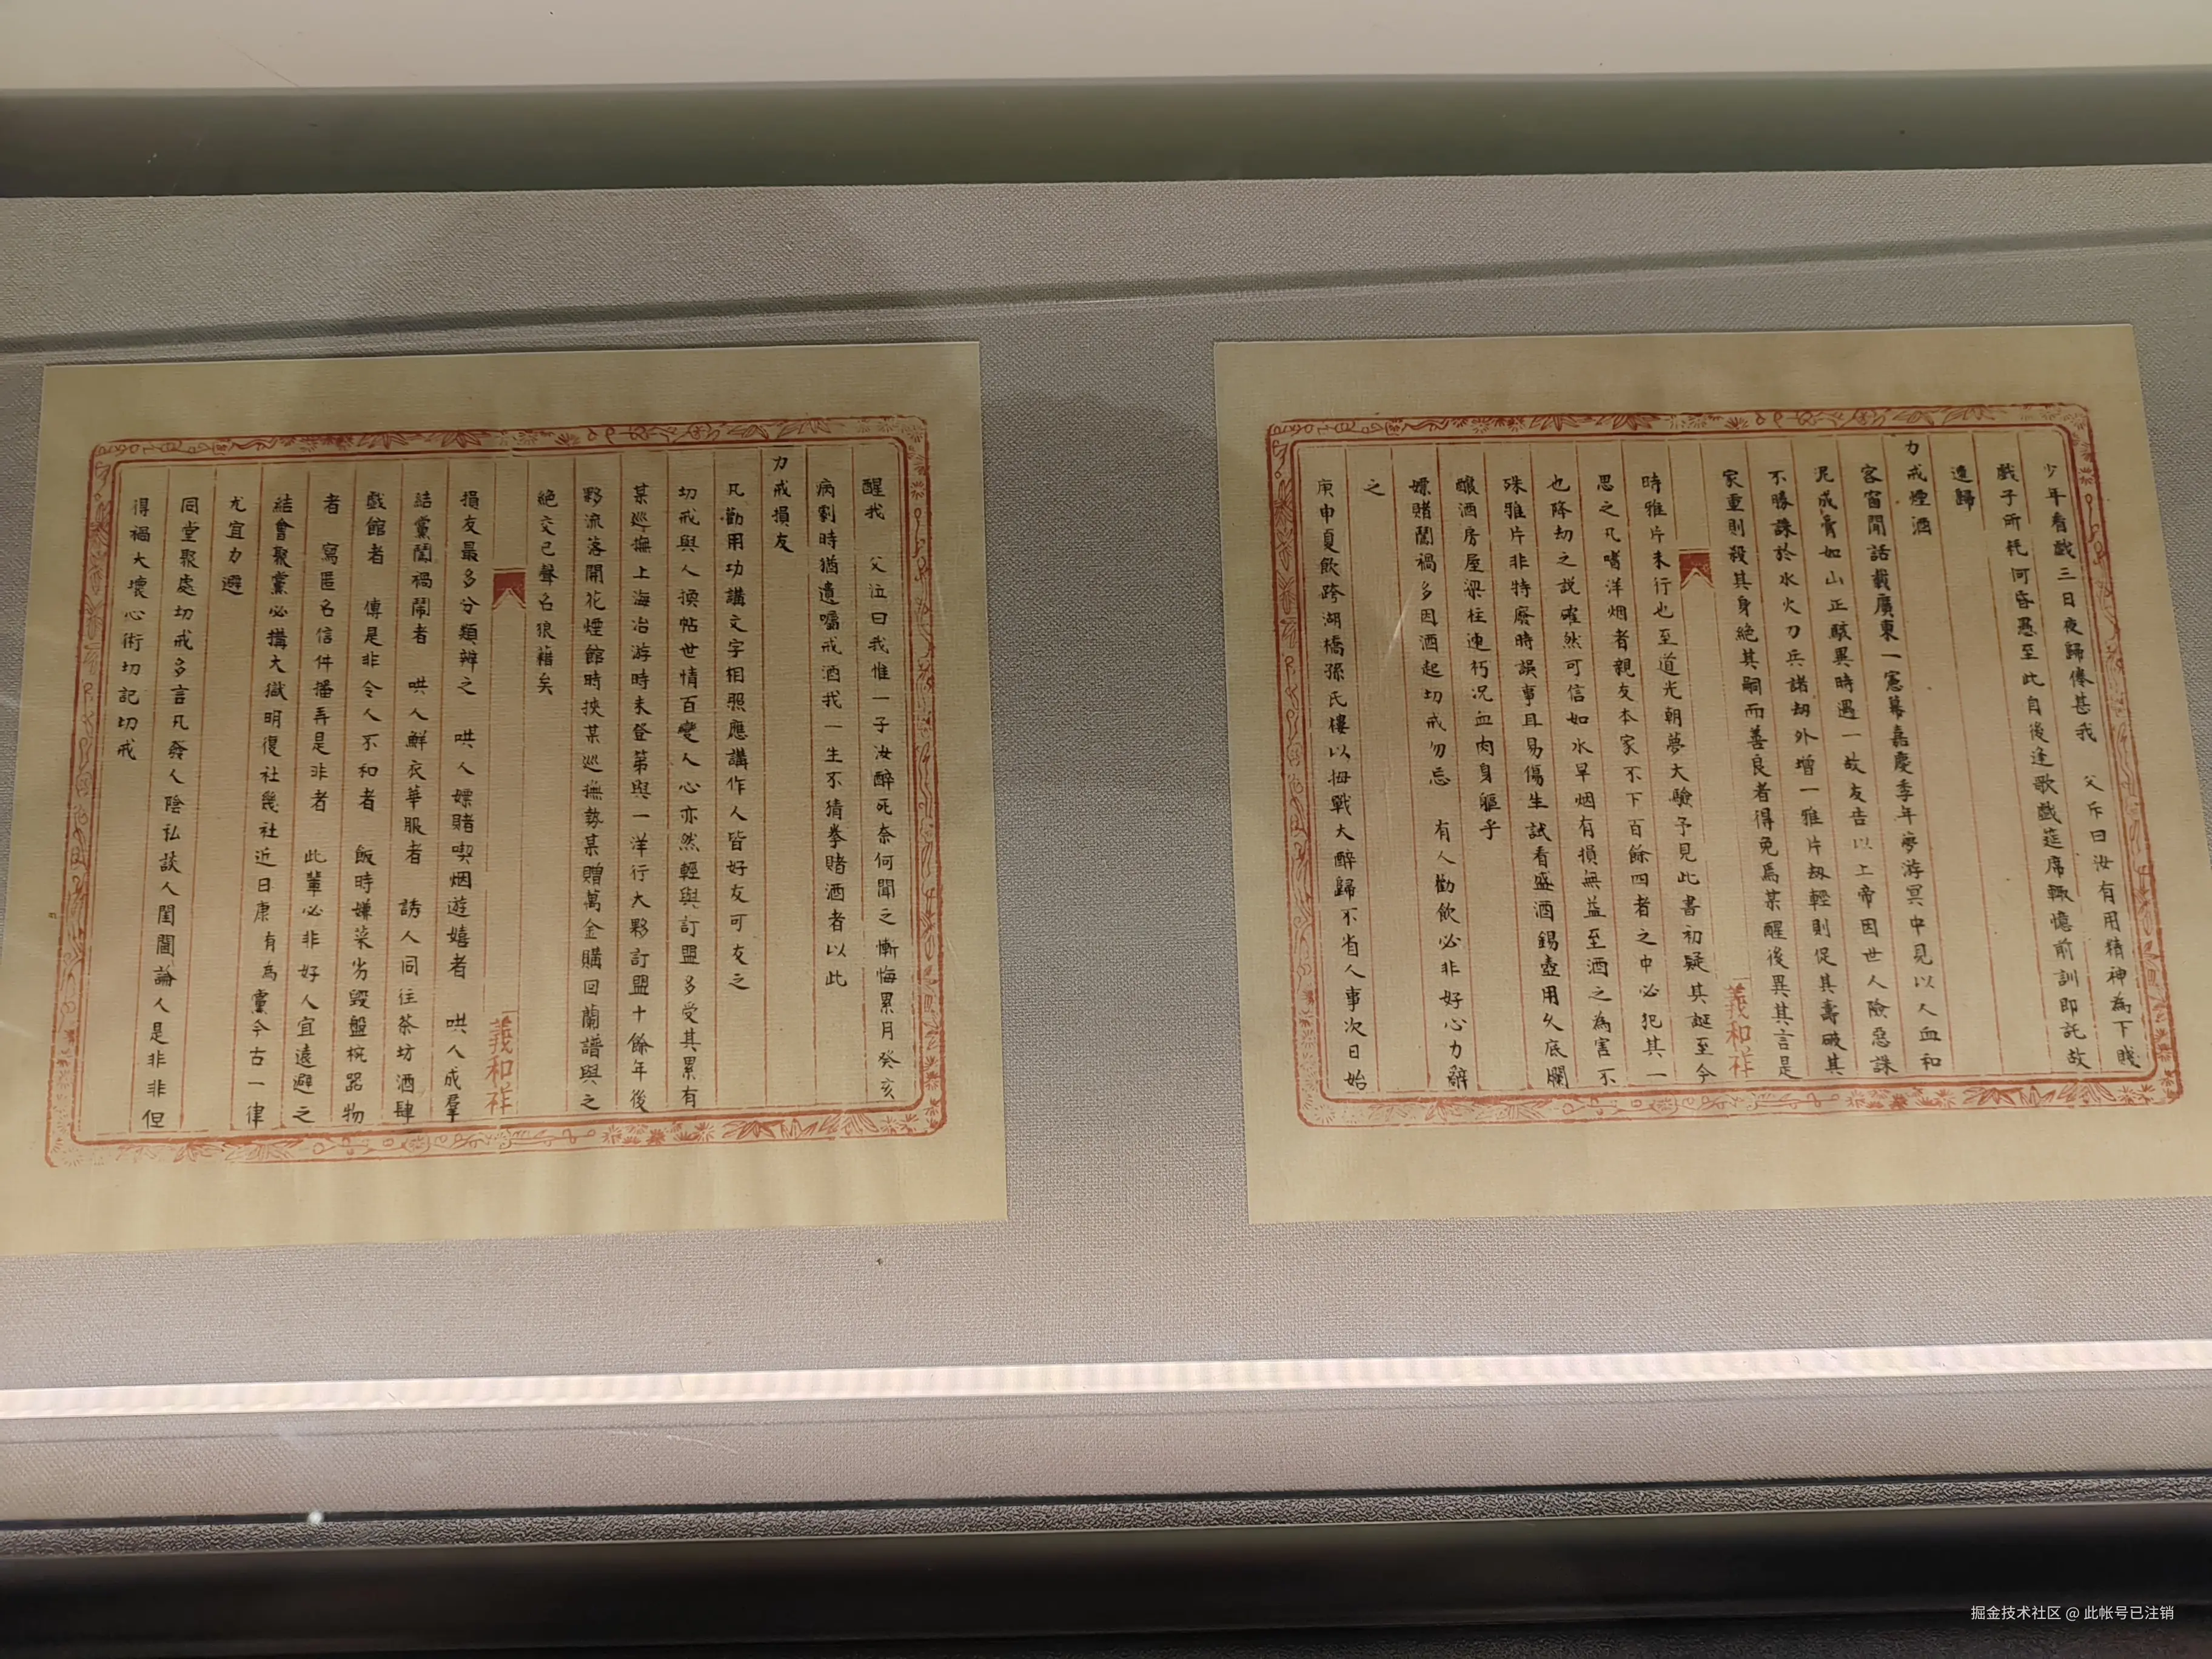 少年看戲三日夜歸倦甚我　父斥曰汝有用精神為下賤
戲子所耗何昏愚至此自後逢歌戲筵席輒憶前訓即託故
逃歸
力戒煙酒
客窗閒話載廣東一憲幕嘉慶季年夢游冥中見以人血和
泥成膏如山正駭異時遇一故友告以上帝因世人險惡誅
不勝誅於水火刀兵諸劫外增一雅片劫輕則促其壽破其
家重則殺其身絕其嗣而善良者得免焉某醒後異其言是
義和祥
時雅片未行也至道光朝夢大驗予見此書初疑其誕至今
思之凡嗜洋烟者親友本家不下百餘四者之中必犯其一
也降劫之說確然可信如水旱烟有損無益至酒之為害不
殊雅片非特廢時誤事且易傷生試看盛酒錫壺用久底爛
釀酒房屋梁柱速朽况血肉身軀乎
嫖賭闖禍多因酒起切戒勿忘　有人勸飲必非好心力辭
之
庚申夏飲跨湖橋孫氏樓以拇戰大醉歸不省人事次日始
醒我　父泣曰我惟一子汝醉死奈何聞之慚悔累月癸亥
病劇時猶遺囑戒酒我一生不猜拳賭酒者以此
力戒損友
凡勸用功講文字相照應講作人皆好友可友之
切戒與人換帖世情百變人心亦然輕與訂盟多受其累有
某巡撫上海冶游時未登第與一洋行大夥訂盟十餘年後
夥流落開花煙館時挾某巡撫勢某贈萬金購回蘭譜與之
絕交已聲名狼藉矣
義和祥
損友最多分類辨之　哄人嫖賭喫烟遊嬉者　哄人成羣
結黨闖禍鬧者　哄人鮮衣華服者　誘人同往茶坊酒肆
戲館者　傳是非令人不和者　飯時嫌菜劣毀盤椀器物
者　寫匿名信件播弄是非者　此輩必非好人宜遠避之
結會聚黨必搆大獄明復社幾社近日康有為黨今古一律
尤宜力避
同堂聚處切戒多言凡發人陰私談人閨閫論人是非非但
得禍大壞心術切記切戒
掘金技术社区 @ 此帐号已注销